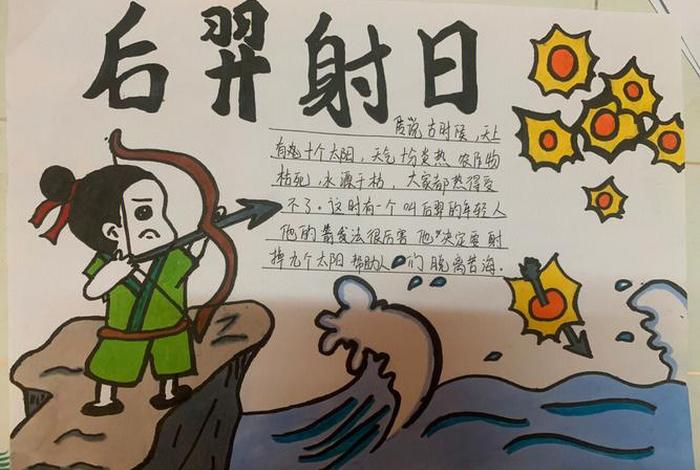 后羿射日
传说古时候,天上
有十个太阳,天气十分炎热,农作物
枯死,水源干枯,大家都热得受
不了。这时有一个叫后羿的年轻人
他的箭法很厉害 他决定要射
掉九个太阳 帮助人们脱离苦海.